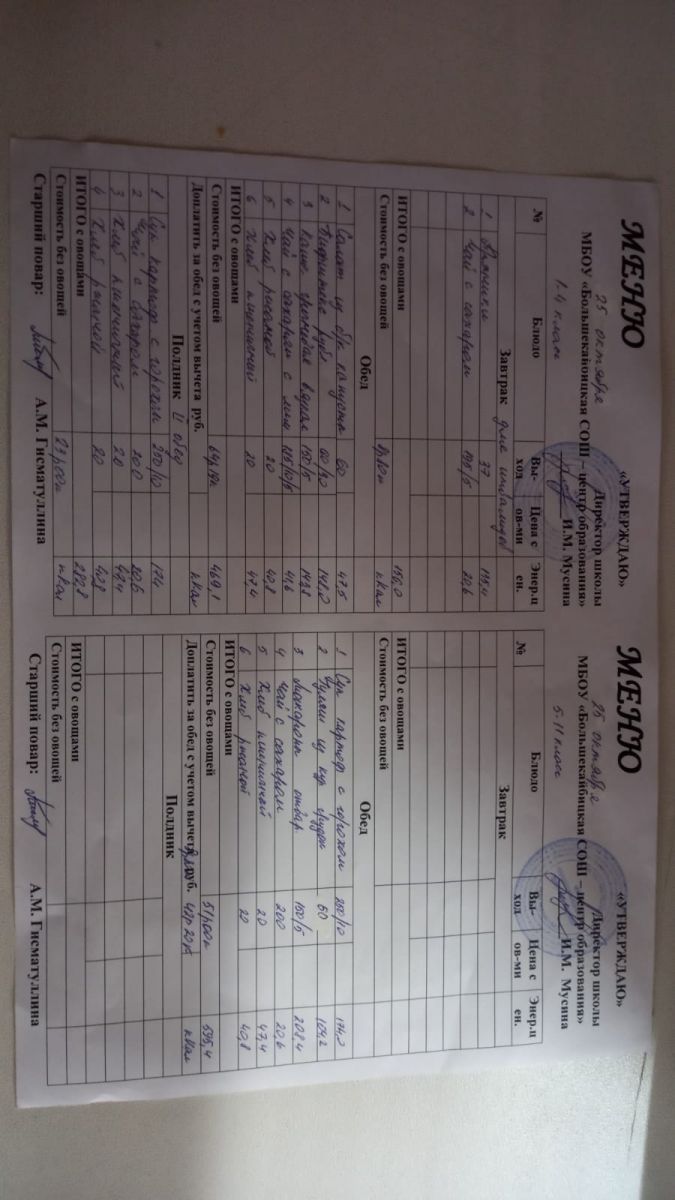 «УТВЕРЖДАЮ»
МЕНЮ
Директор школы
МБОУ «Большекайбицкая СОШ – центр образования»
25 октября
И.М. Мусина
1-4 класс
№ Блюдо Вы- ход Цена с ов-ми Энер.ц ен.
Завтрак для инвалидов
1 Пряники 37 135,4
2 Чай с сахаром 195/5 20,6
ИТОГО с овощами 156,0
Стоимость без овощей ккал
Обед
1 Салат из б/к капусты 60 47,5
2 60/30 148,0
3 Каша гречневая 150/5 143,8
4 Чай с сахаром с лим 41,6
5 Хлеб ржаной 20 40,8
6 Хлеб пшеничный 20 47,4
ИТОГО с овощами
Стоимость без овощей 469,1
Доплатить за обед с учетом вычета руб. ккал
Полдник II обед
1 Суп картоф с горохом 250/10 174
2 Чай с сахаром 200 20,6
3 Хлеб пшеничный 20 47,4
4 Хлеб ржаной 20 40,8
ИТОГО с овощами 282,8
Стоимость без овощей 23р00к ккал
Старший повар: А.М. Гисматуллина
«УТВЕРЖДАЮ»
МЕНЮ
Директор школы
МБОУ «Большекайбицкая СОШ – центр образования»
25 октября
И.М. Мусина
5-11 класс
№ Блюдо Вы- ход Цена с ов-ми Энер.ц ен.
Завтрак
ИТОГО с овощами
Стоимость без овощей
Обед
1 Суп картоф с горохом 250/10 174,0
2 Гуляш из кур грудки 60 104,2
3 Макароны отвар 150/5 208,4
4 Чай с сахаром 200 20,6
5 Хлеб пшеничный 20 47,4
6 Хлеб ржаной 20 40,8
ИТОГО с овощами
Стоимость без овощей 51р00к 595,4
Доплатить за обед с учетом вычета руб. 42р 20к ккал
Полдник
ИТОГО с овощами
Стоимость без овощей
Старший повар: А.М. Гисматуллина